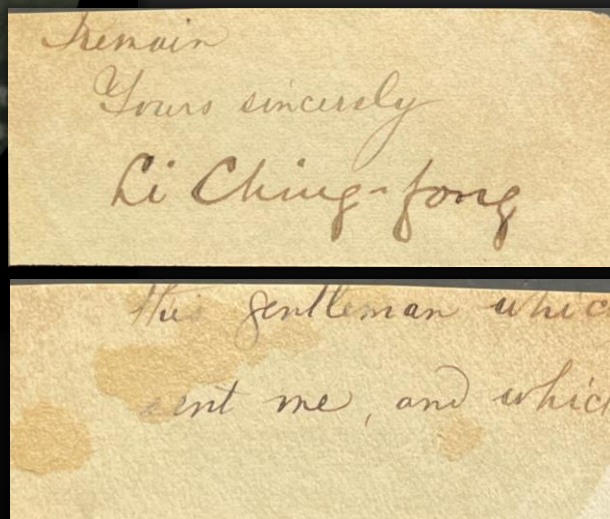 remain
Yours sincerely
Li Ching-fong
this gentleman which
sent me, and which